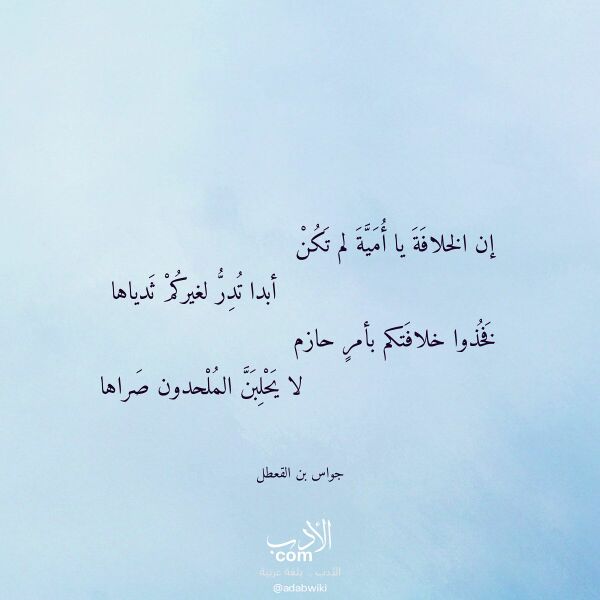 إن الخلافَةَ يا أُمَيَّةَ لم تَكُنْ
أبدا تُدِرُّ لغيركُمْ ثَدياها
فَخُذوا خلافَتكم بأمرٍ حازم
لا يَحْلِبَنَّ المُلْحدون صَراها
جواس بن القعطل
الأدب
com
الأدب .. بلغة عربية
@adabwiki